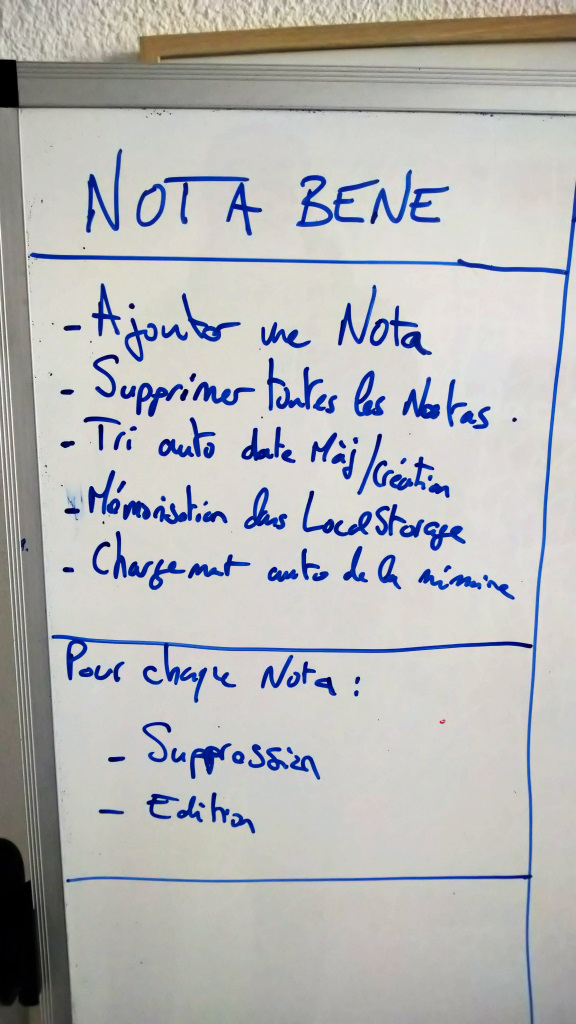 NOTA BENE
- Ajouter une Nota
- Supprimer toutes les Notas.
- Tri auto date Màj/Création
- Mémorisation dans LocalStorage
- Chargement auto de la mémoire
Pour chaque Nota :
- Suppression
- Edition